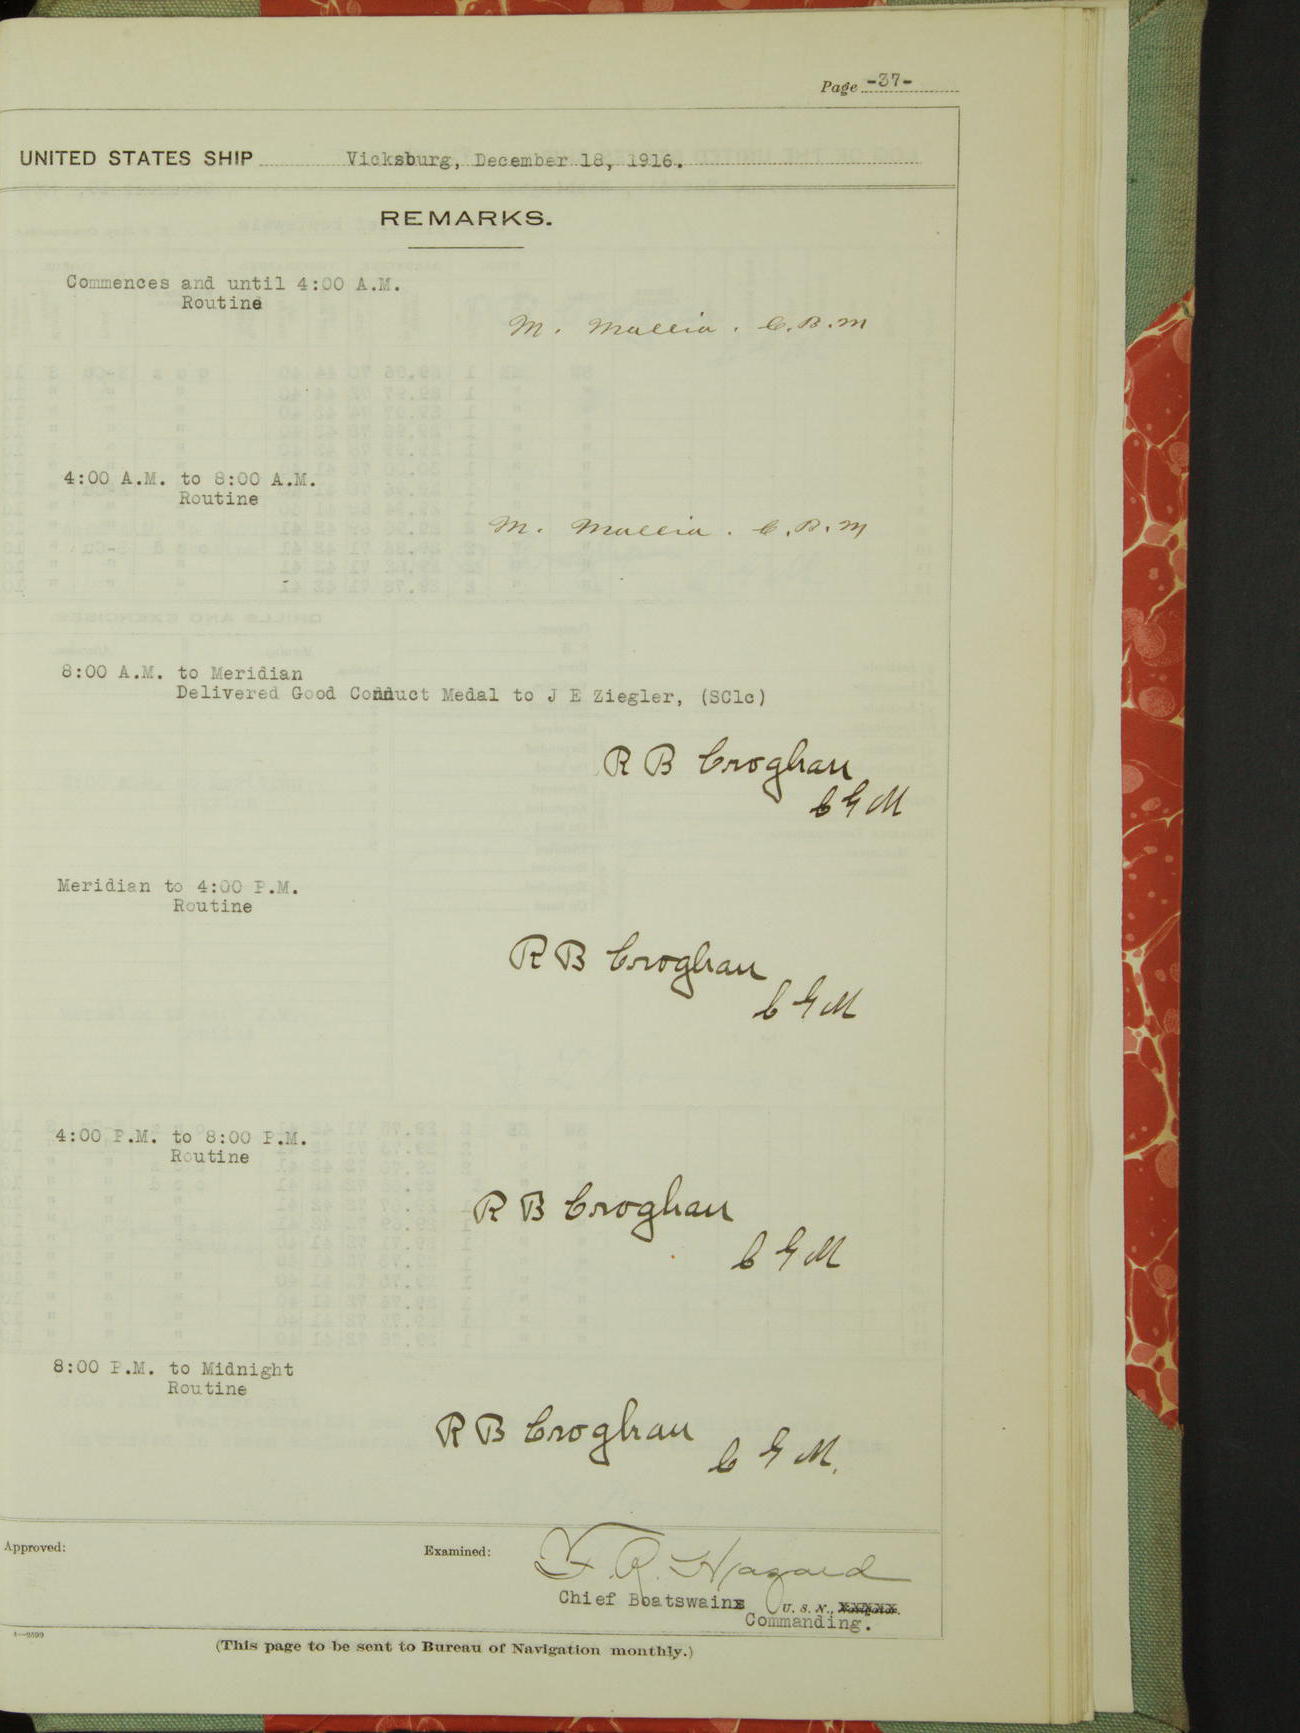 Page -37-
UNITED STATES SHIP Vicksburg, December 18, 1916.
REMARKS.
Commences and until 4:00 A.M.
Routine
M. Mallia. C.B.M
4:00 A.M. to 8:00 A.M.
Routine
M. Mallia. C.B.M
8:00 A.M. to Meridian
Delivered Good Conduct Medal to J E Ziegler, (SC1c)
R B Croghan
C G M
Meridian to 4:00 P.M.
Routine
R B Croghan
C G M
4:00 P.M. to 8:00 P.M.
Routine
R B Croghan
C G M
8:00 P.M. to Midnight
Routine
R B Croghan
C G M.
Approved:
Examined:
F. R. Hazard
Chief Boatswain U. S. N., Navigator.
Commanding.
(This page to be sent to Bureau of Navigation monthly.)